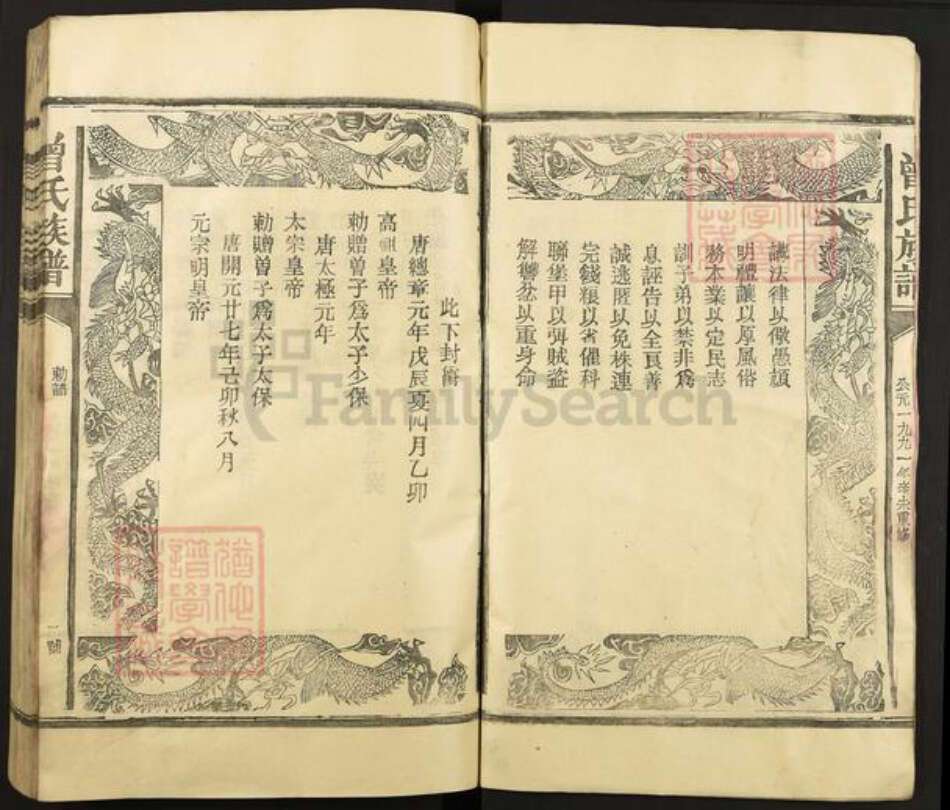 曾氏族譜
公元一九九一年辛未重修
講法律以儆愚頑
明禮讓以厚風俗
務本業以定民志
訓子弟以禁非爲
息誣告以全良善
誡逃匿以免株連
完錢粮以省催科
聯堡甲以弭賊盜
解讐忿以重身命
此下封衛
唐總章元年戊辰夏四月乙卯
高祖皇帝
勅贈曾子爲太子少保
唐太極元年
太宗皇帝
勅贈曾子爲太子太保
唐開元廿七年己卯秋八月
元宗明皇帝
曾氏族譜
勅諭
FamilySearch